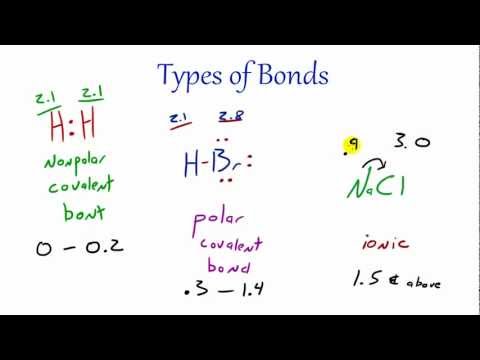 Types of Bonds
2.1 2.1
H:H
Nonpolar
covalent
bont
0 - 0.2
2.1 2.8
H-Br:
polar
covalent
bond
.3 - 1.4
.9 3.0
NaCl
ionic
1.5 & above